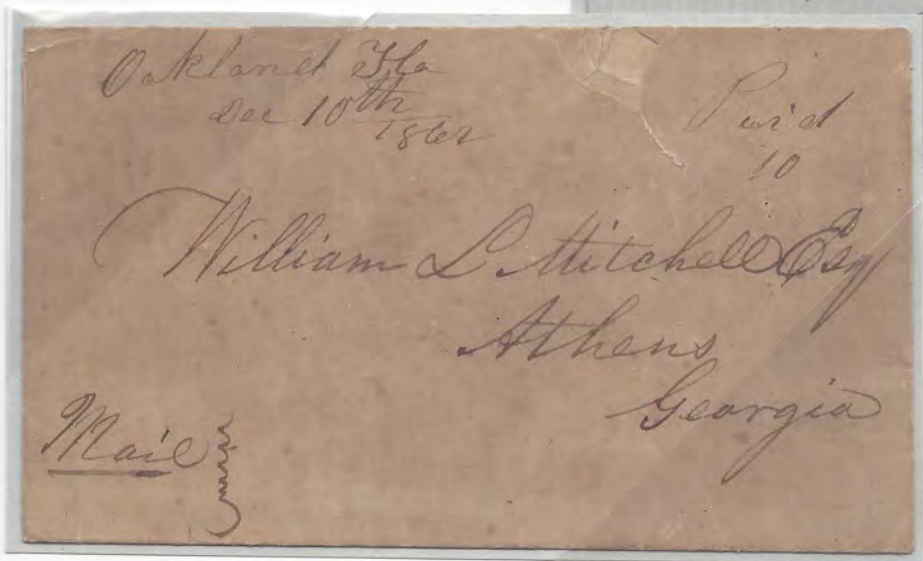 Oakland Fla
Dec 10th 1862
Paid
10
William L Mitchell Esq
Athens
Georgia
Mail